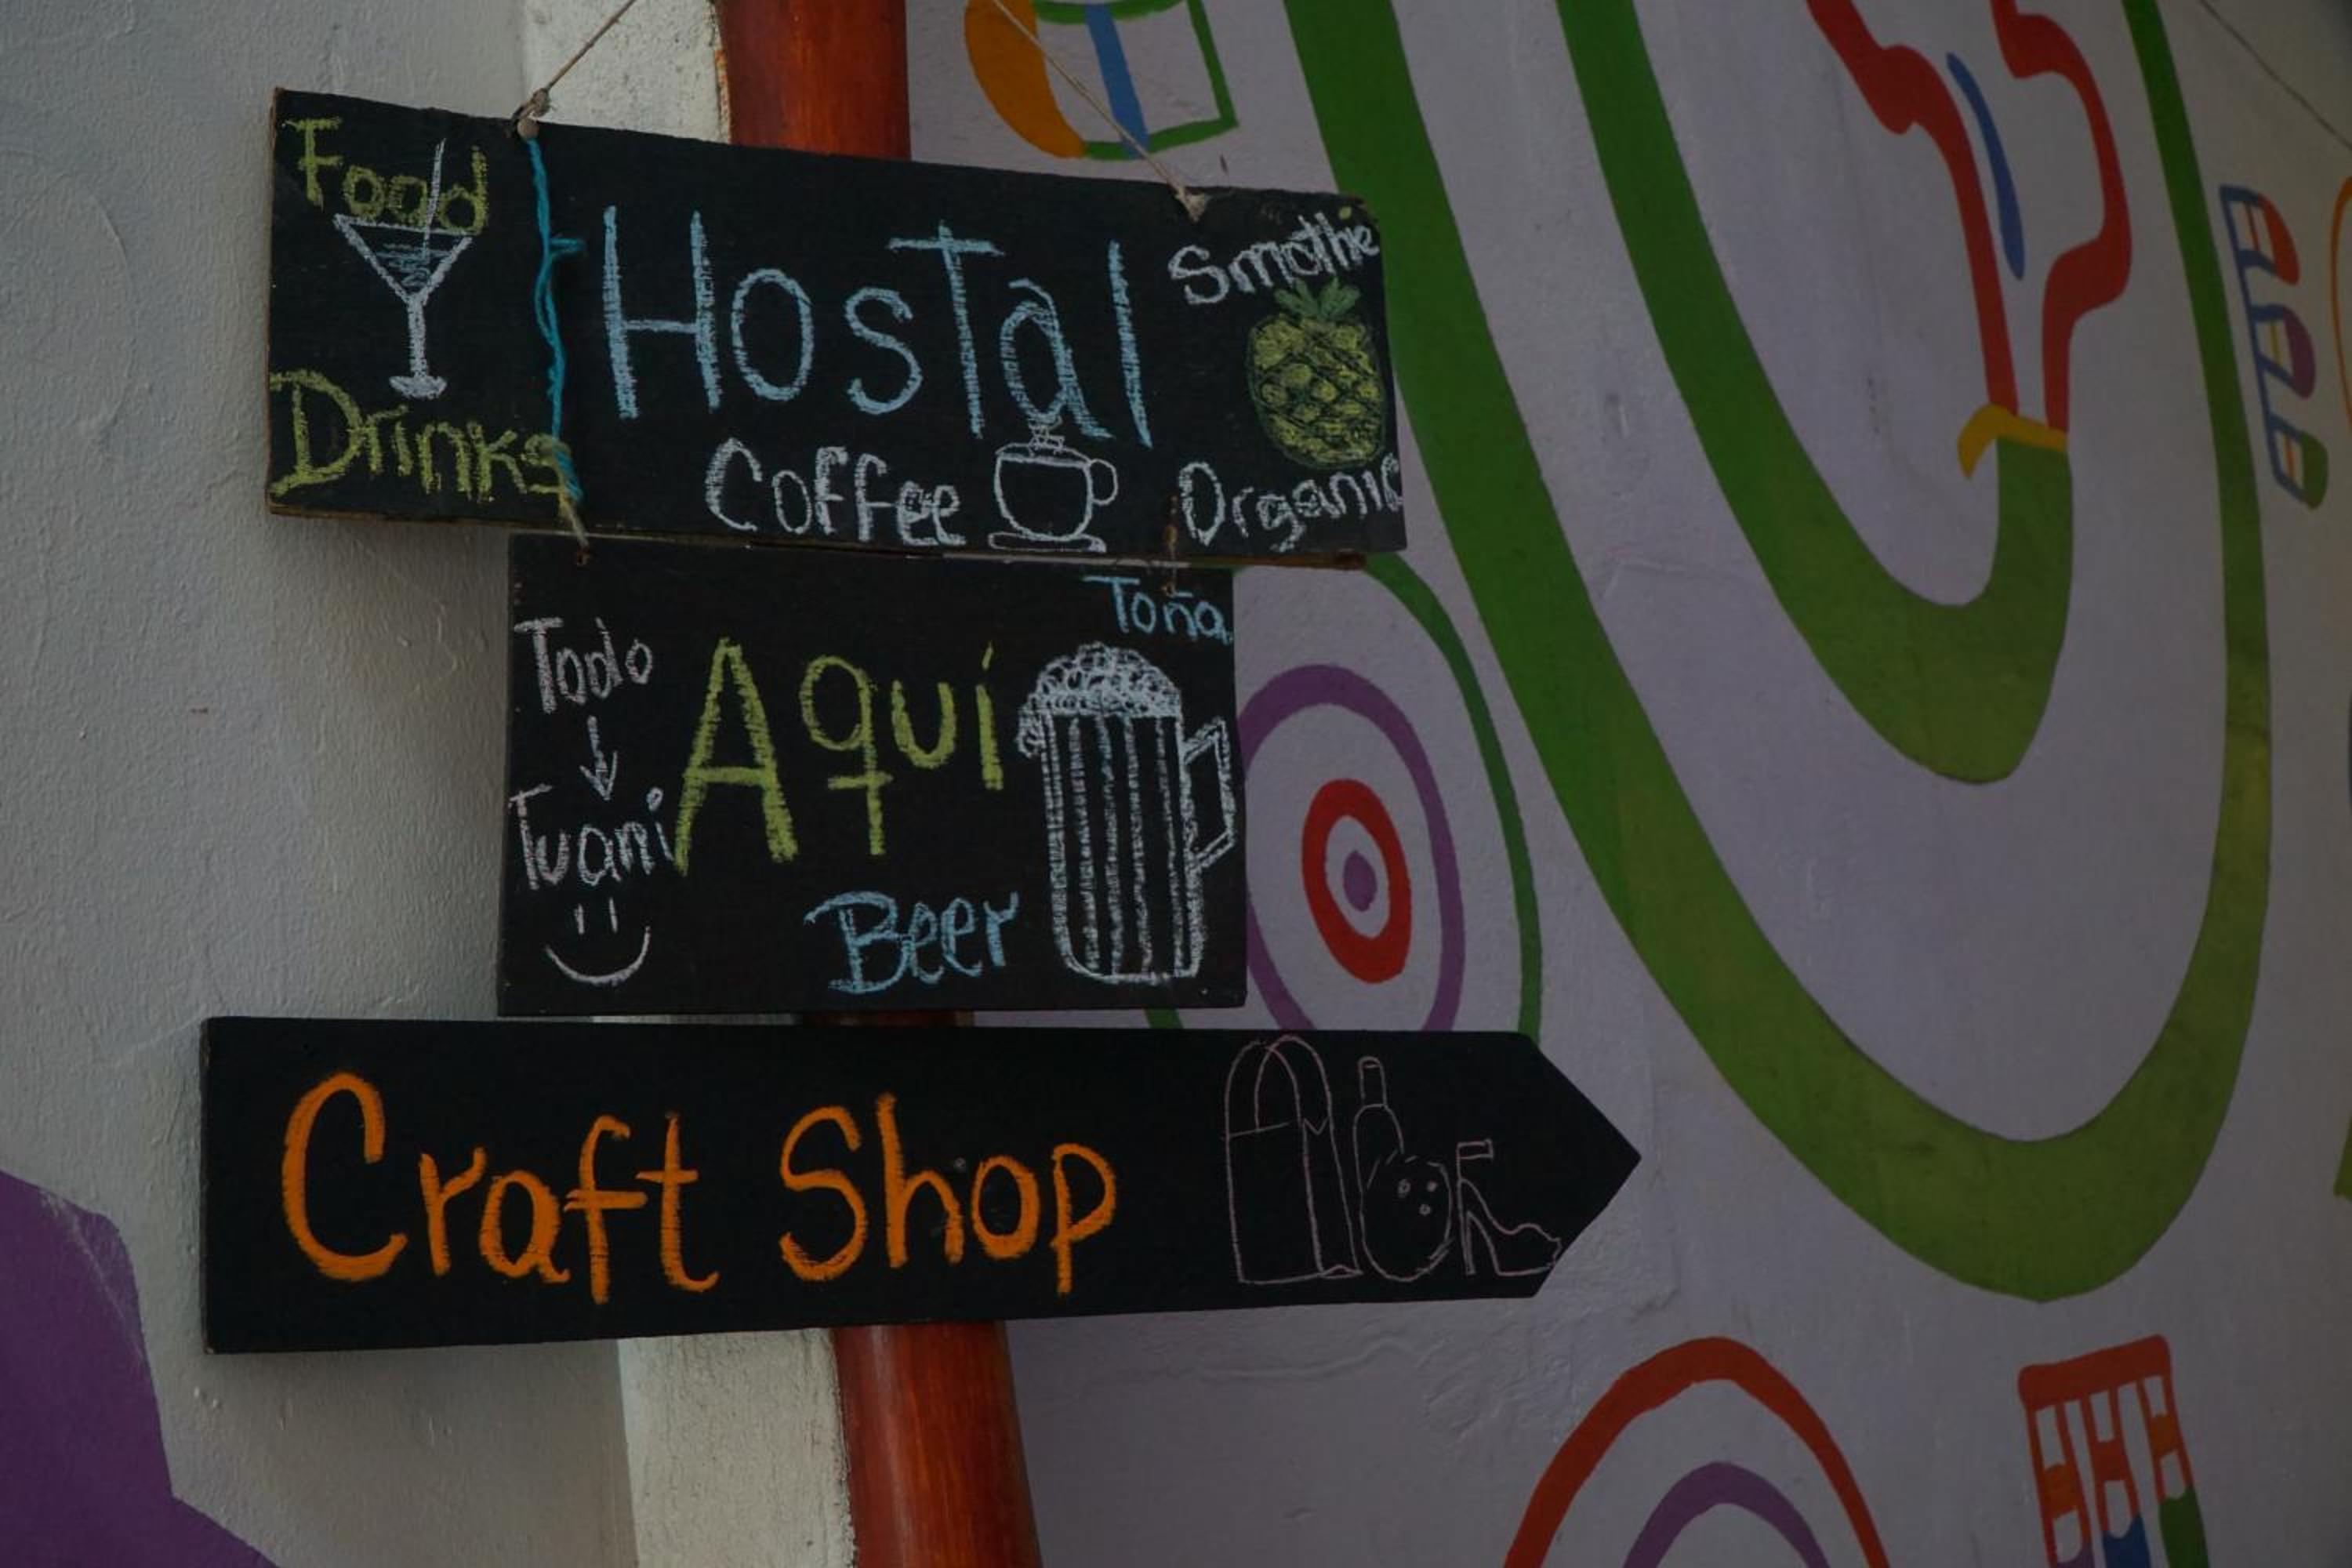 Food
Drinks
Hostal
Coffee
Smothie
Organic
Todo
Tuani
Aquí
Toña
Beer
Craft Shop